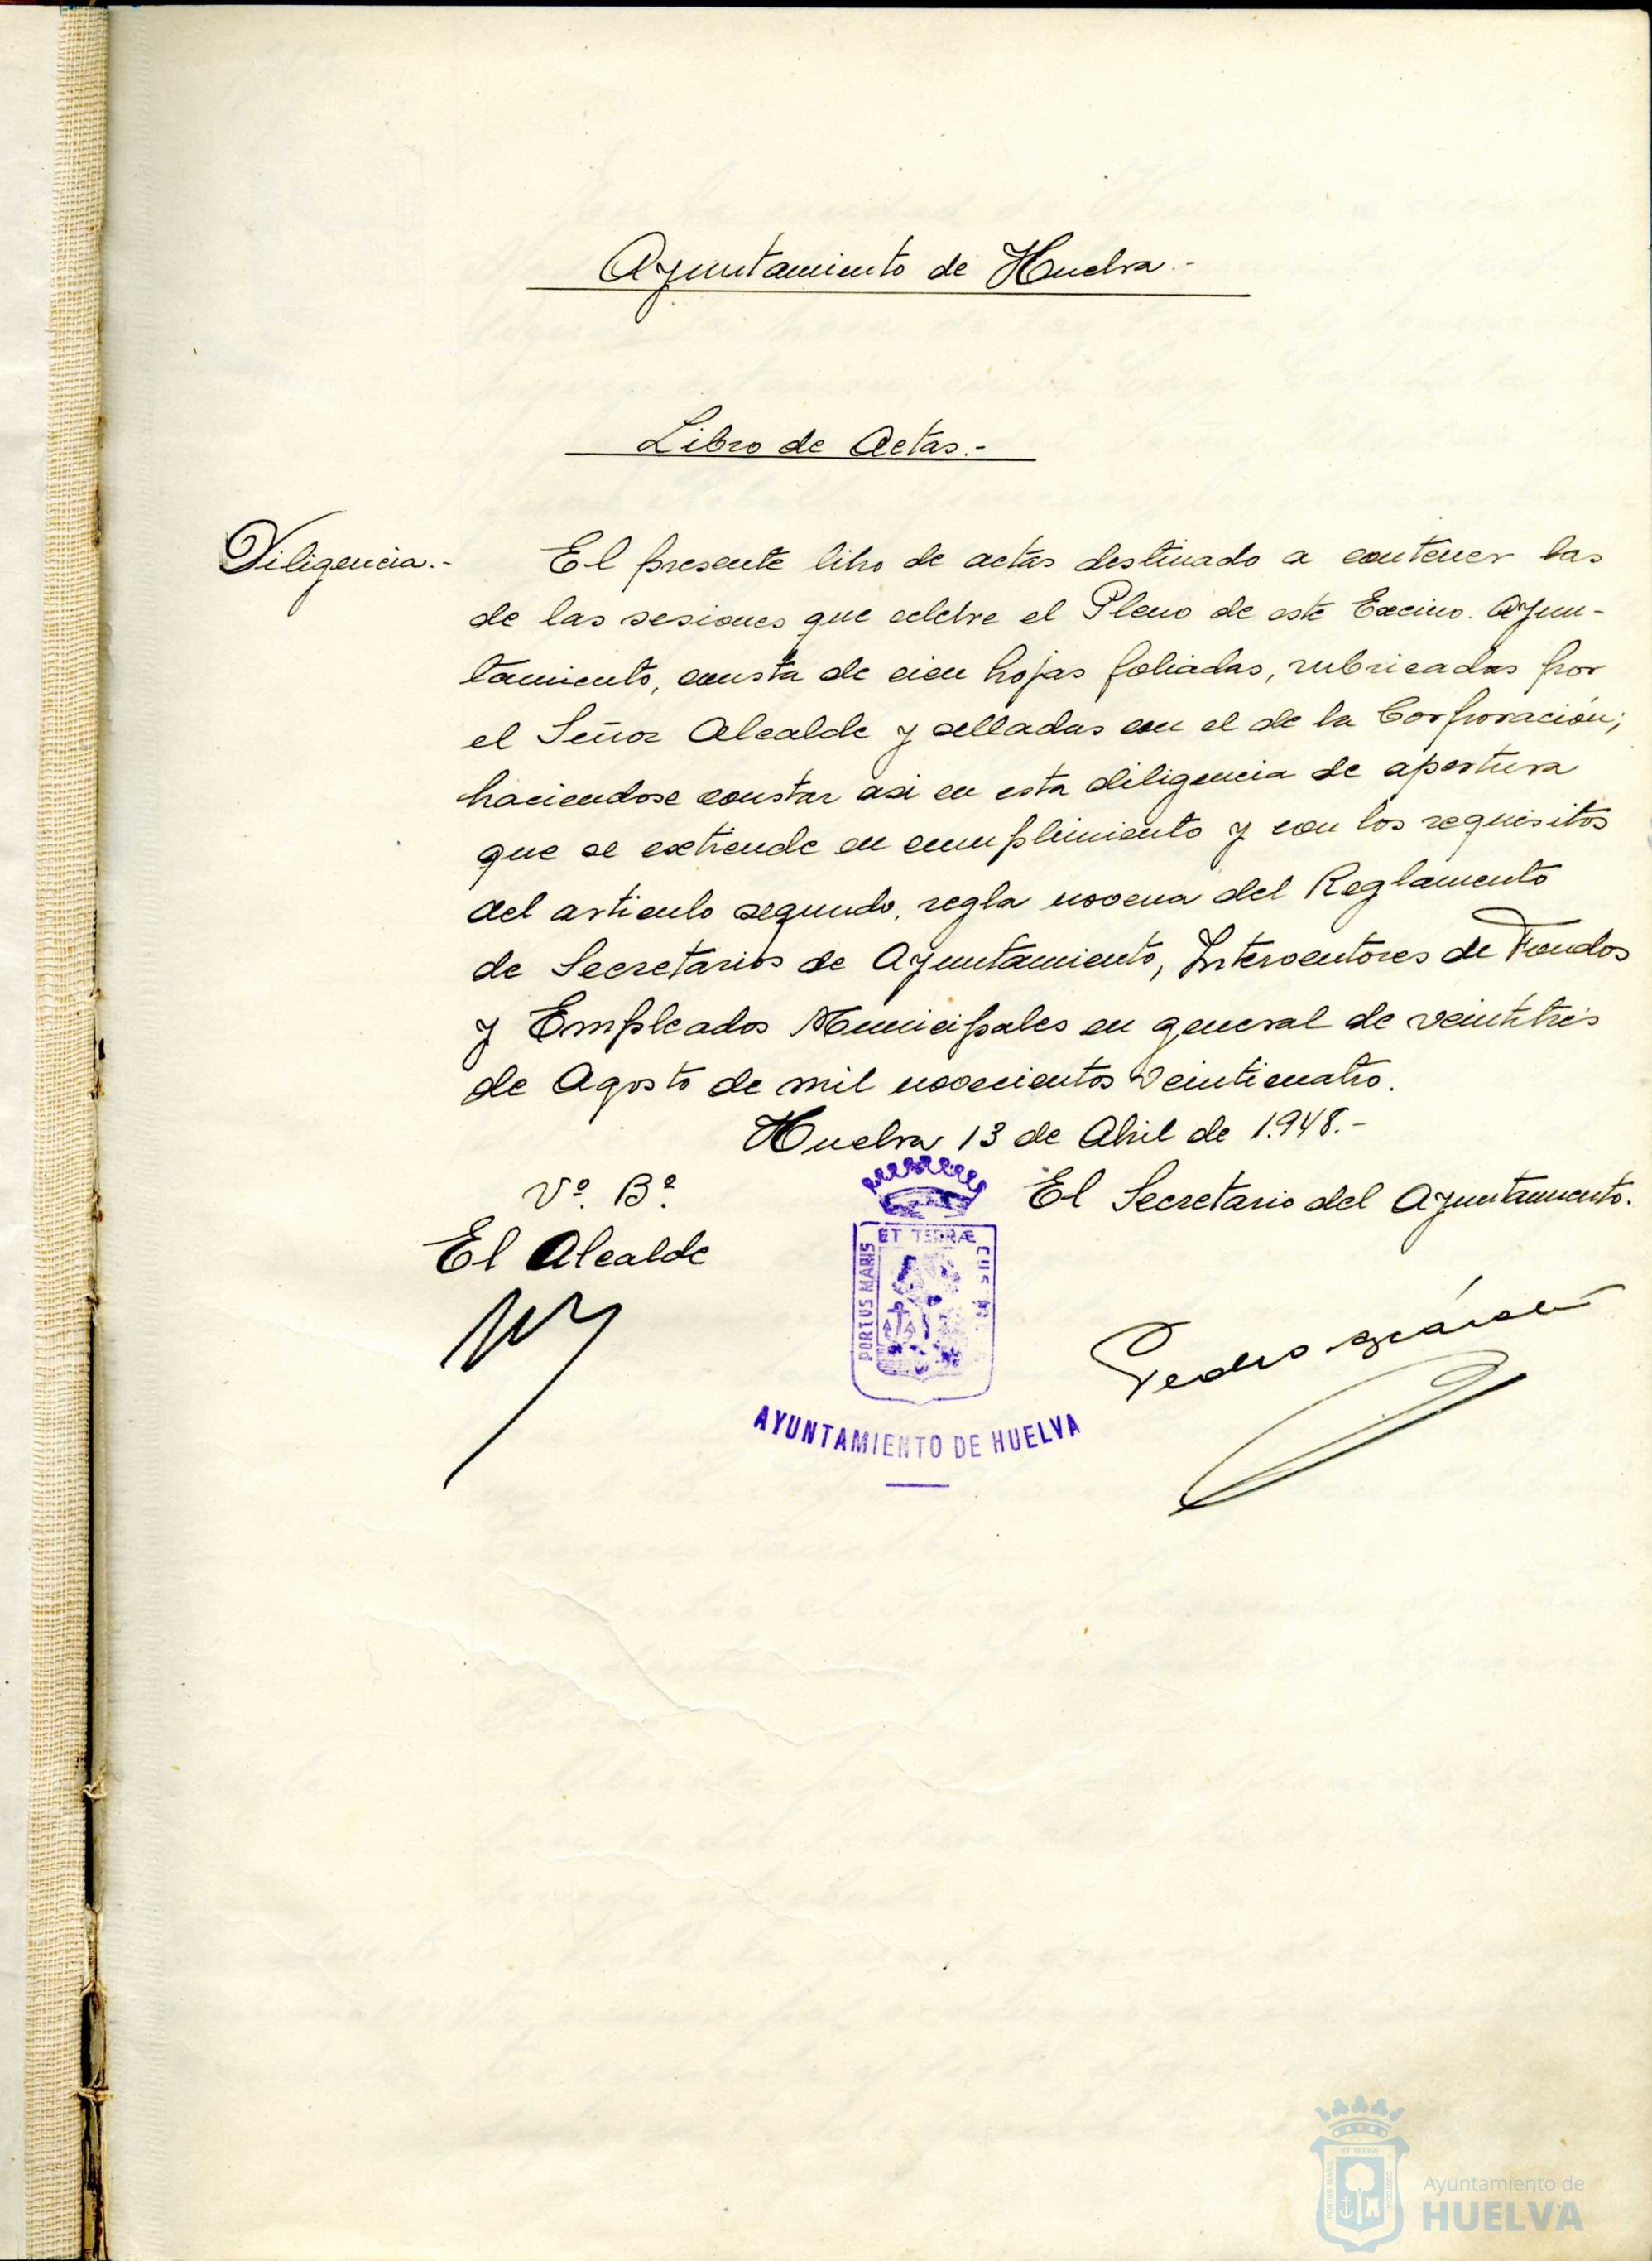 Ayuntamiento de Huelva.-
Libro de Actas.-
Diligencia.- El presente libro de actas destinado a contener las
de las sesiones que celebre el Pleno de este Excmo. Ayun-
tamiento, consta de cien hojas foliadas, rubricadas por
el Señor Alcalde y selladas con el de la Corporación;
haciendose constar asi en esta diligencia de apertura
que se extiende en cumplimiento y con los requisitos
del articulo segundo, regla novena del Reglamento
de Secretarios de Ayuntamiento, Interventores de Fondos
y Empleados Municipales en general de veintitrés
de Agosto de mil novecientos veinticuatro.
Huelva 13 de Abril de 1.948.-
Vº. Bº.
El Alcalde
El Secretario del Ayuntamiento.
PORTUS MARIS
ET TERRÆ
Pedro
AYUNTAMIENTO DE HUELVA
ET TERRÆ
PORTUS MARIS
CUSTODIA
Ayuntamiento de
HUELVA